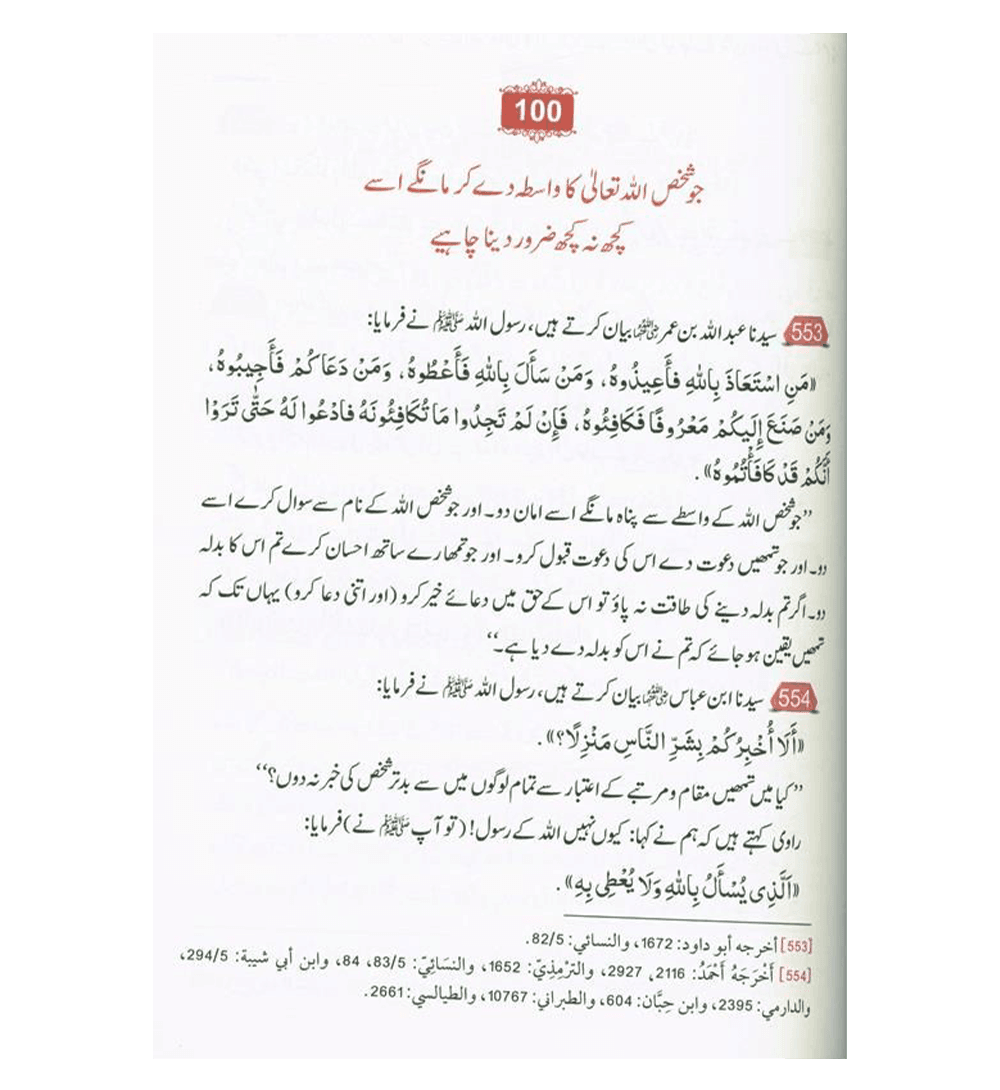 100
جو شخص اللہ تعالیٰ کا واسطہ دے کر مانگے اسے
کچھ نہ کچھ ضرور دینا چاہیے
553 سیدنا عبداللہ بن عمر رضی اللہ عنہما بیان کرتے ہیں، رسول اللہ ﷺ نے فرمایا:
«مَنِ اسْتَعَاذَ بِاللهِ فأَعِيذُوهُ، وَمَنْ سَأَلَ بِاللهِ فَأَعْطُوهُ، وَمَنْ دَعَاكُمْ فَأَجِيبُوهُ،
وَمَنْ صَنَعَ إِلَيكُمْ مَعْرُوفًا فَكَافِئُوهُ، فَإِنْ لَمْ تَجِدُوا مَا تُكَافِئُونَهُ فادْعُوا لَهُ حَتَّى تَرَوْا
أَنَّكُمْ قَدْ كَافَأْتُمُوهُ».
”جو شخص اللہ کے واسطے سے پناہ مانگے اسے امان دو۔ اور جو شخص اللہ کے نام سے سوال کرے اسے
دو۔ اور جو تمھیں دعوت دے اس کی دعوت قبول کرو۔ اور جو تمھارے ساتھ احسان کرے تم اس کا بدلہ
دو۔ اگر تم بدلہ دینے کی طاقت نہ پاؤ تو اس کے حق میں دعائے خیر کرو (اور اتنی دعا کرو) یہاں تک کہ
تمھیں یقین ہو جائے کہ تم نے اس کو بدلہ دے دیا ہے۔“
554 سیدنا ابن عباس رضی اللہ عنہما بیان کرتے ہیں، رسول اللہ ﷺ نے فرمایا:
«أَلَا أُخْبِرُكُمْ بِشَرِّ النَّاسِ مَنْزِلًا؟».
”کیا میں تمھیں مقام و مرتبے کے اعتبار سے تمام لوگوں میں سے بدتر شخص کی خبر نہ دوں؟“
راوی کہتے ہیں کہ ہم نے کہا: کیوں نہیں اللہ کے رسول! (تو آپ ﷺ نے) فرمایا:
«اَلَّذِي يُسْأَلُ بِاللهِ وَلَا يُعْطِي بِهِ».
[553] أخرجه أبو داود: 1672، والنسائي: 82/5.
[554] أَخْرَجَهُ أَحْمَدُ: 2116، 2927، والتِرْمِذِيّ: 1652، والنسَائِيّ: 83/5، 84، وابن أبي شيبة: 294/5،
والدارمي: 2395، وابن حِبَّان: 604، والطبراني: 10767، والطيالسي: 2661.